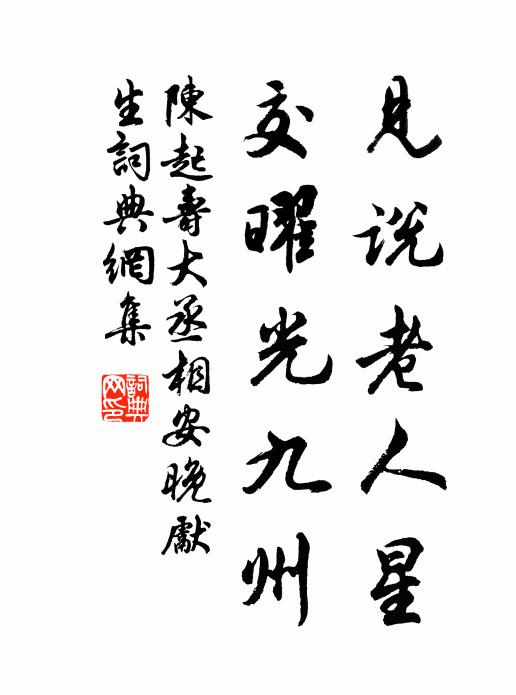 見説老人星
交曜光九州
陳起壽大丞相安晚獻
生詞典網集
詞典網印